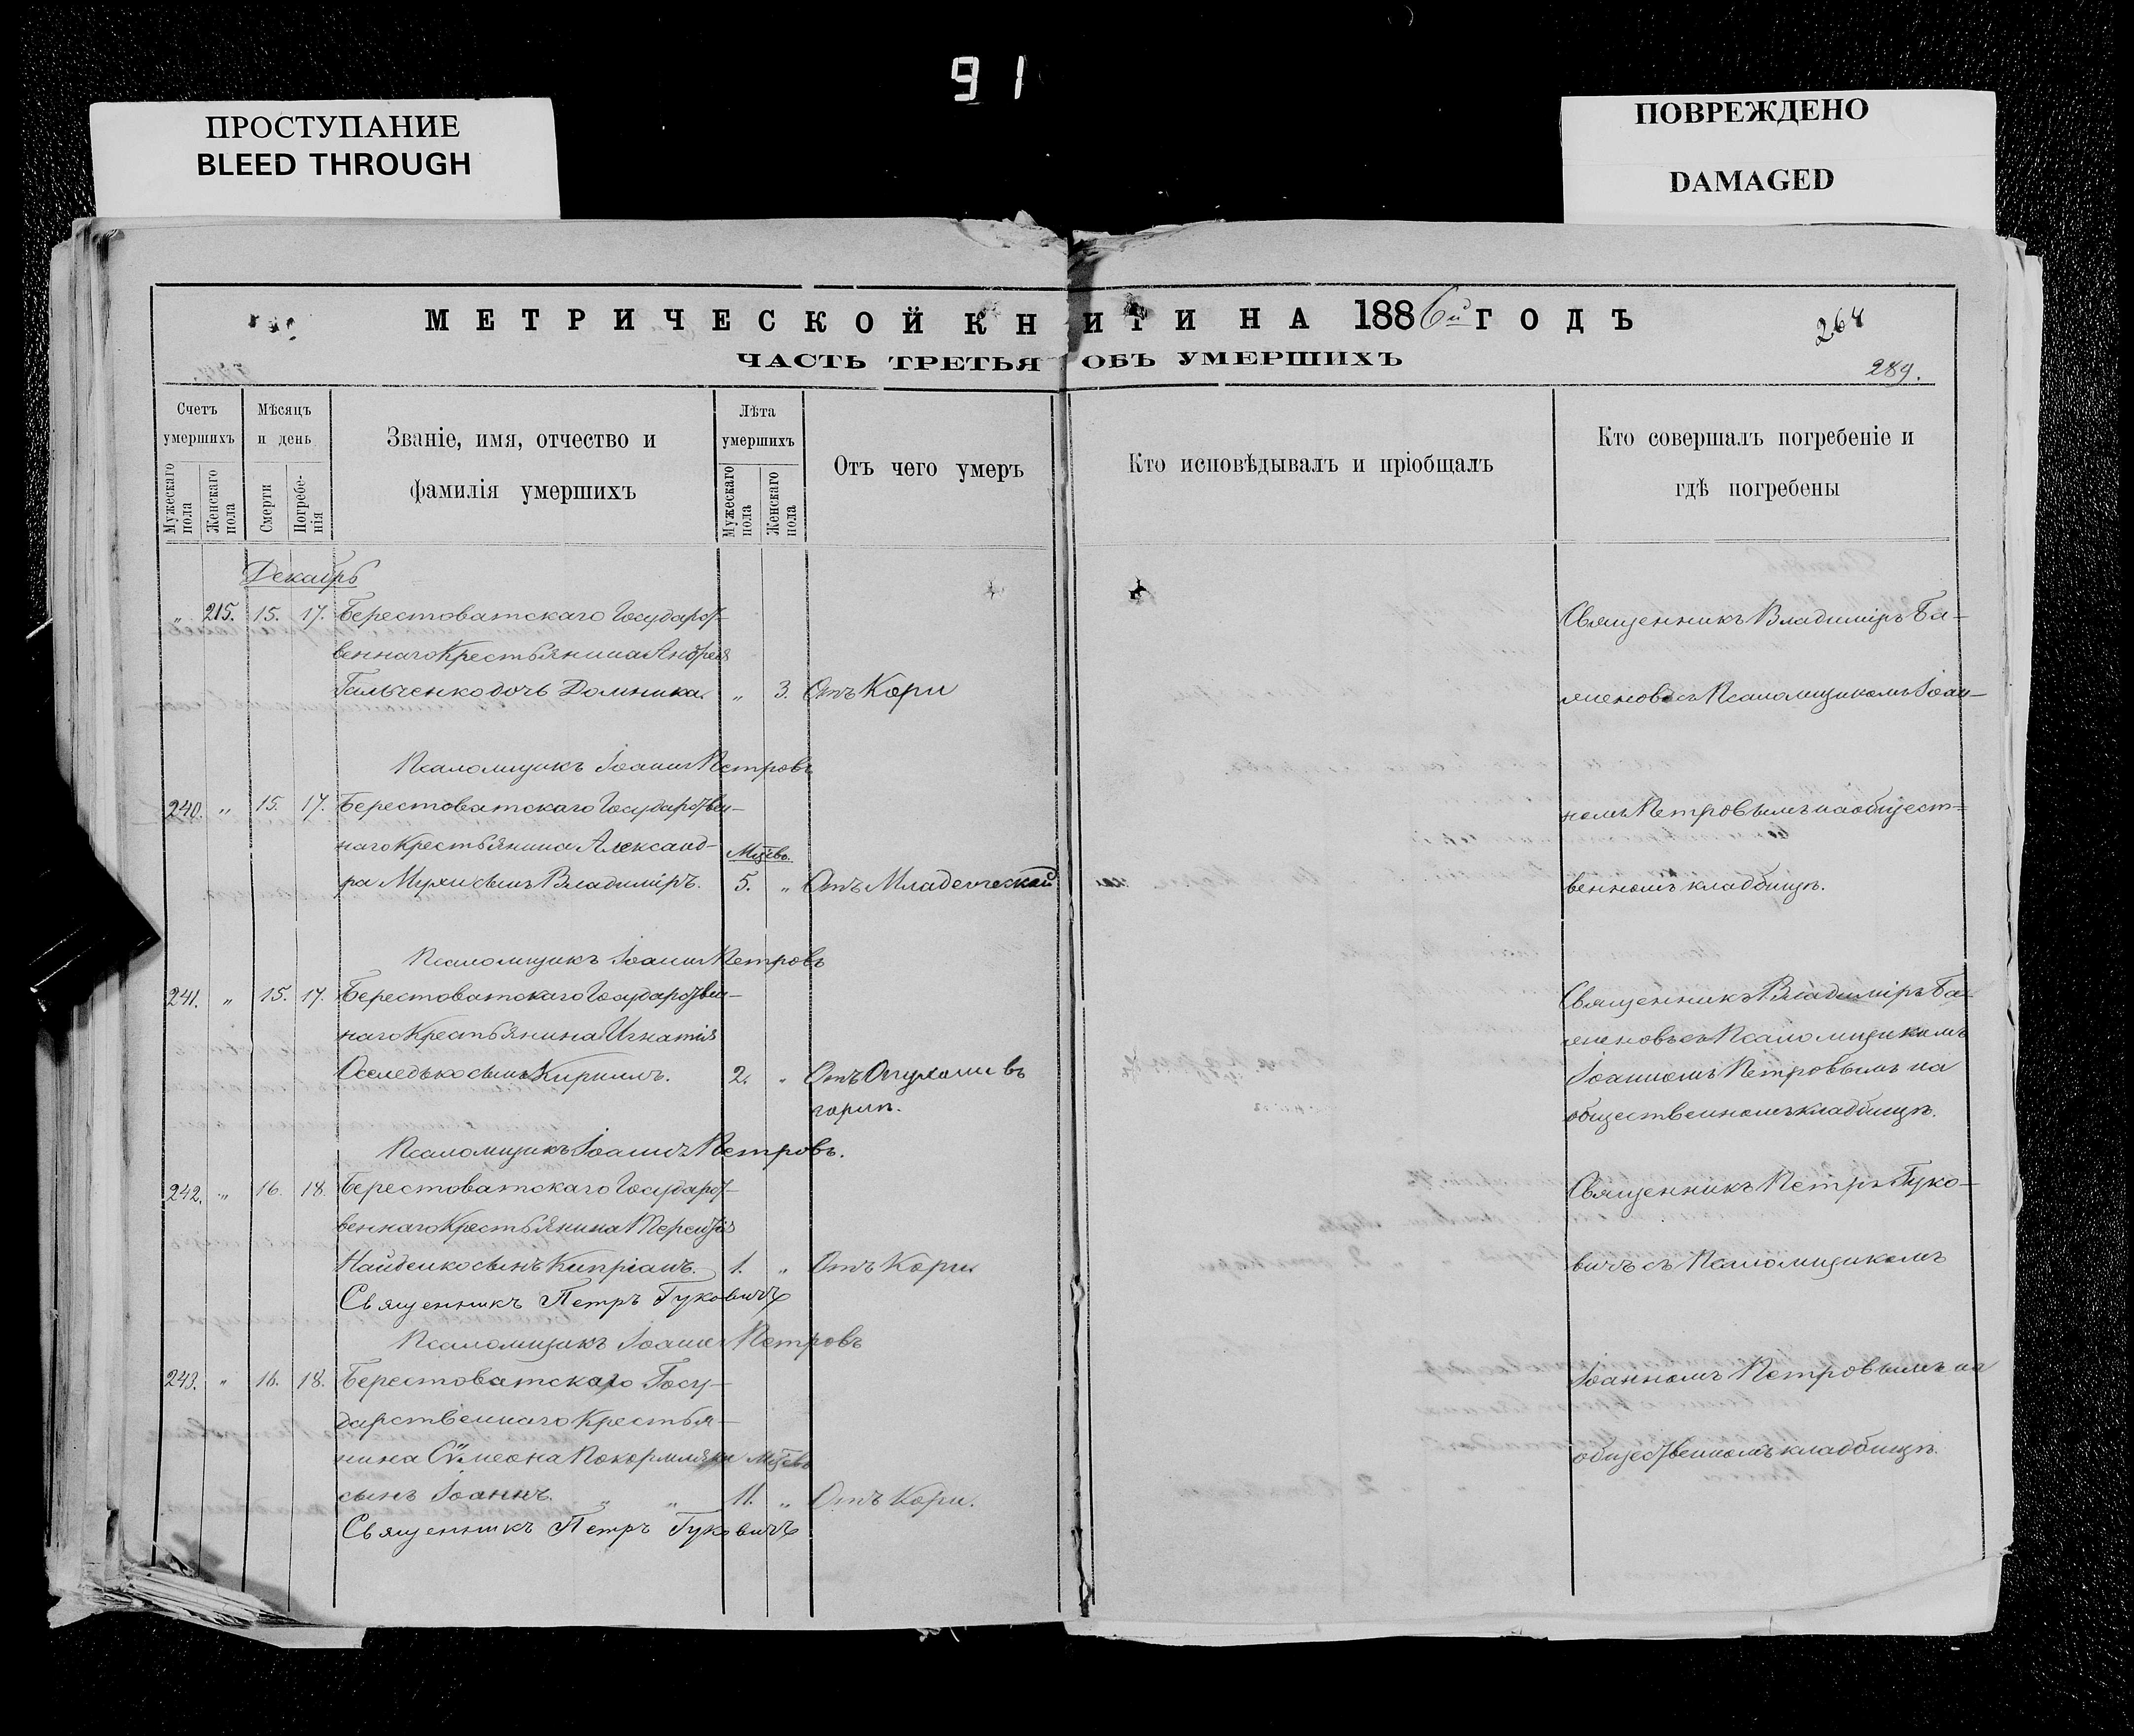 91
ПРОСТУПАНИЕ
BLEED THROUGH
ПОВРЕЖДЕНО
DAMAGED
МЕТРИЧЕСКОЙ КНИГИ НА 1886й ГОДЪ
264
ЧАСТЬ ТРЕТЬЯ ОБЪ УМЕРШИХЪ
289.
Счетъ умершихъ
Мужескаго пола
Женскаго пола
Мѣсяцъ и день
Смерти
Погребе-нія
Званіе, имя, отчество и
фамилія умершихъ
Лѣта умершихъ
Мужескаго пола
Женскаго пола
Отъ чего умеръ
Кто исповѣдывалъ и пріобщалъ
Кто совершалъ погребеніе и
гдѣ погребены
Декабрь
„ 215. 15. 17. Берестоватскаго Государст-
веннаго Крестьянина Андрея
Гальченко дочь Домника. „ 3. Отъ Кори
Священникъ Владиміръ Ба-
женовъ съ Псаломщикомъ Іоан-
Псаломщикъ Іоаннъ Петровъ
240. „ 15. 17. Берестоватскаго Государствен-
наго Крестьянина Александ-
Мцевъ
ра Мухи сынъ Владиміръ. 5. „ Отъ Младенческой
номъ Петровымъ на общест-
венномъ кладбищѣ.
Псаломщикъ Іоаннъ Петровъ
241. „ 15. 17. Берестоватскаго Государствен-
наго Крестьянина Игнатія
Оселедько сынъ Кириллъ. 2. „ Отъ Опухоли въ
горлѣ.
Священникъ Владиміръ Ба-
женовъ съ Псаломщикомъ
Іоанномъ Петровымъ на
общественномъ кладбищѣ.
Псаломщикъ Іоаннъ Петровъ.
242. „ 16. 18. Берестоватскаго Государст-
веннаго Крестьянина Терентія
Найденко сынъ Кипріанъ. 1. „ Отъ Кори.
Священникъ Петръ Гуковичъ
Священникъ Петръ Гуко-
вичъ съ Псаломщикомъ
Псаломщикъ Іоаннъ Петровъ
243. „ 16. 18. Берестоватскаго Госу-
дарственнаго Крестья-
нина Сѵмеона Мцевъ
сынъ Іоаннъ. „ „ 11. „ Отъ Кори.
Священникъ Петръ Гуковичъ
Іоанномъ Петровымъ на
общественномъ кладбищѣ.